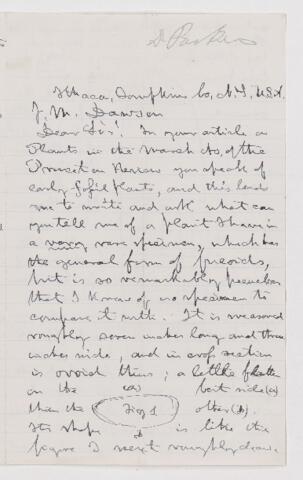 Dr Parker
Ithaca, Tompkins Co, N.Y. U.S.A.
J. W. Dawson
Dear Sir! In your article on
Plants in the March No. of the
Princeton Review you speak of
early fossil plants, and this leads
me to write and ask what can
you tell me of a plant I have in
a very rare specimen, which has
the general form of fucoids,
but is so remarkably peculiar
that I know of no specimen to
compare it with. It is measured
roughly seven inches long and three
inches wide, and in cross section
is ovoid thus; a little flatter
on the (a) side (a)
than the Fig 1 other (b).
Its shape b is like the
figure I next roughly draw.